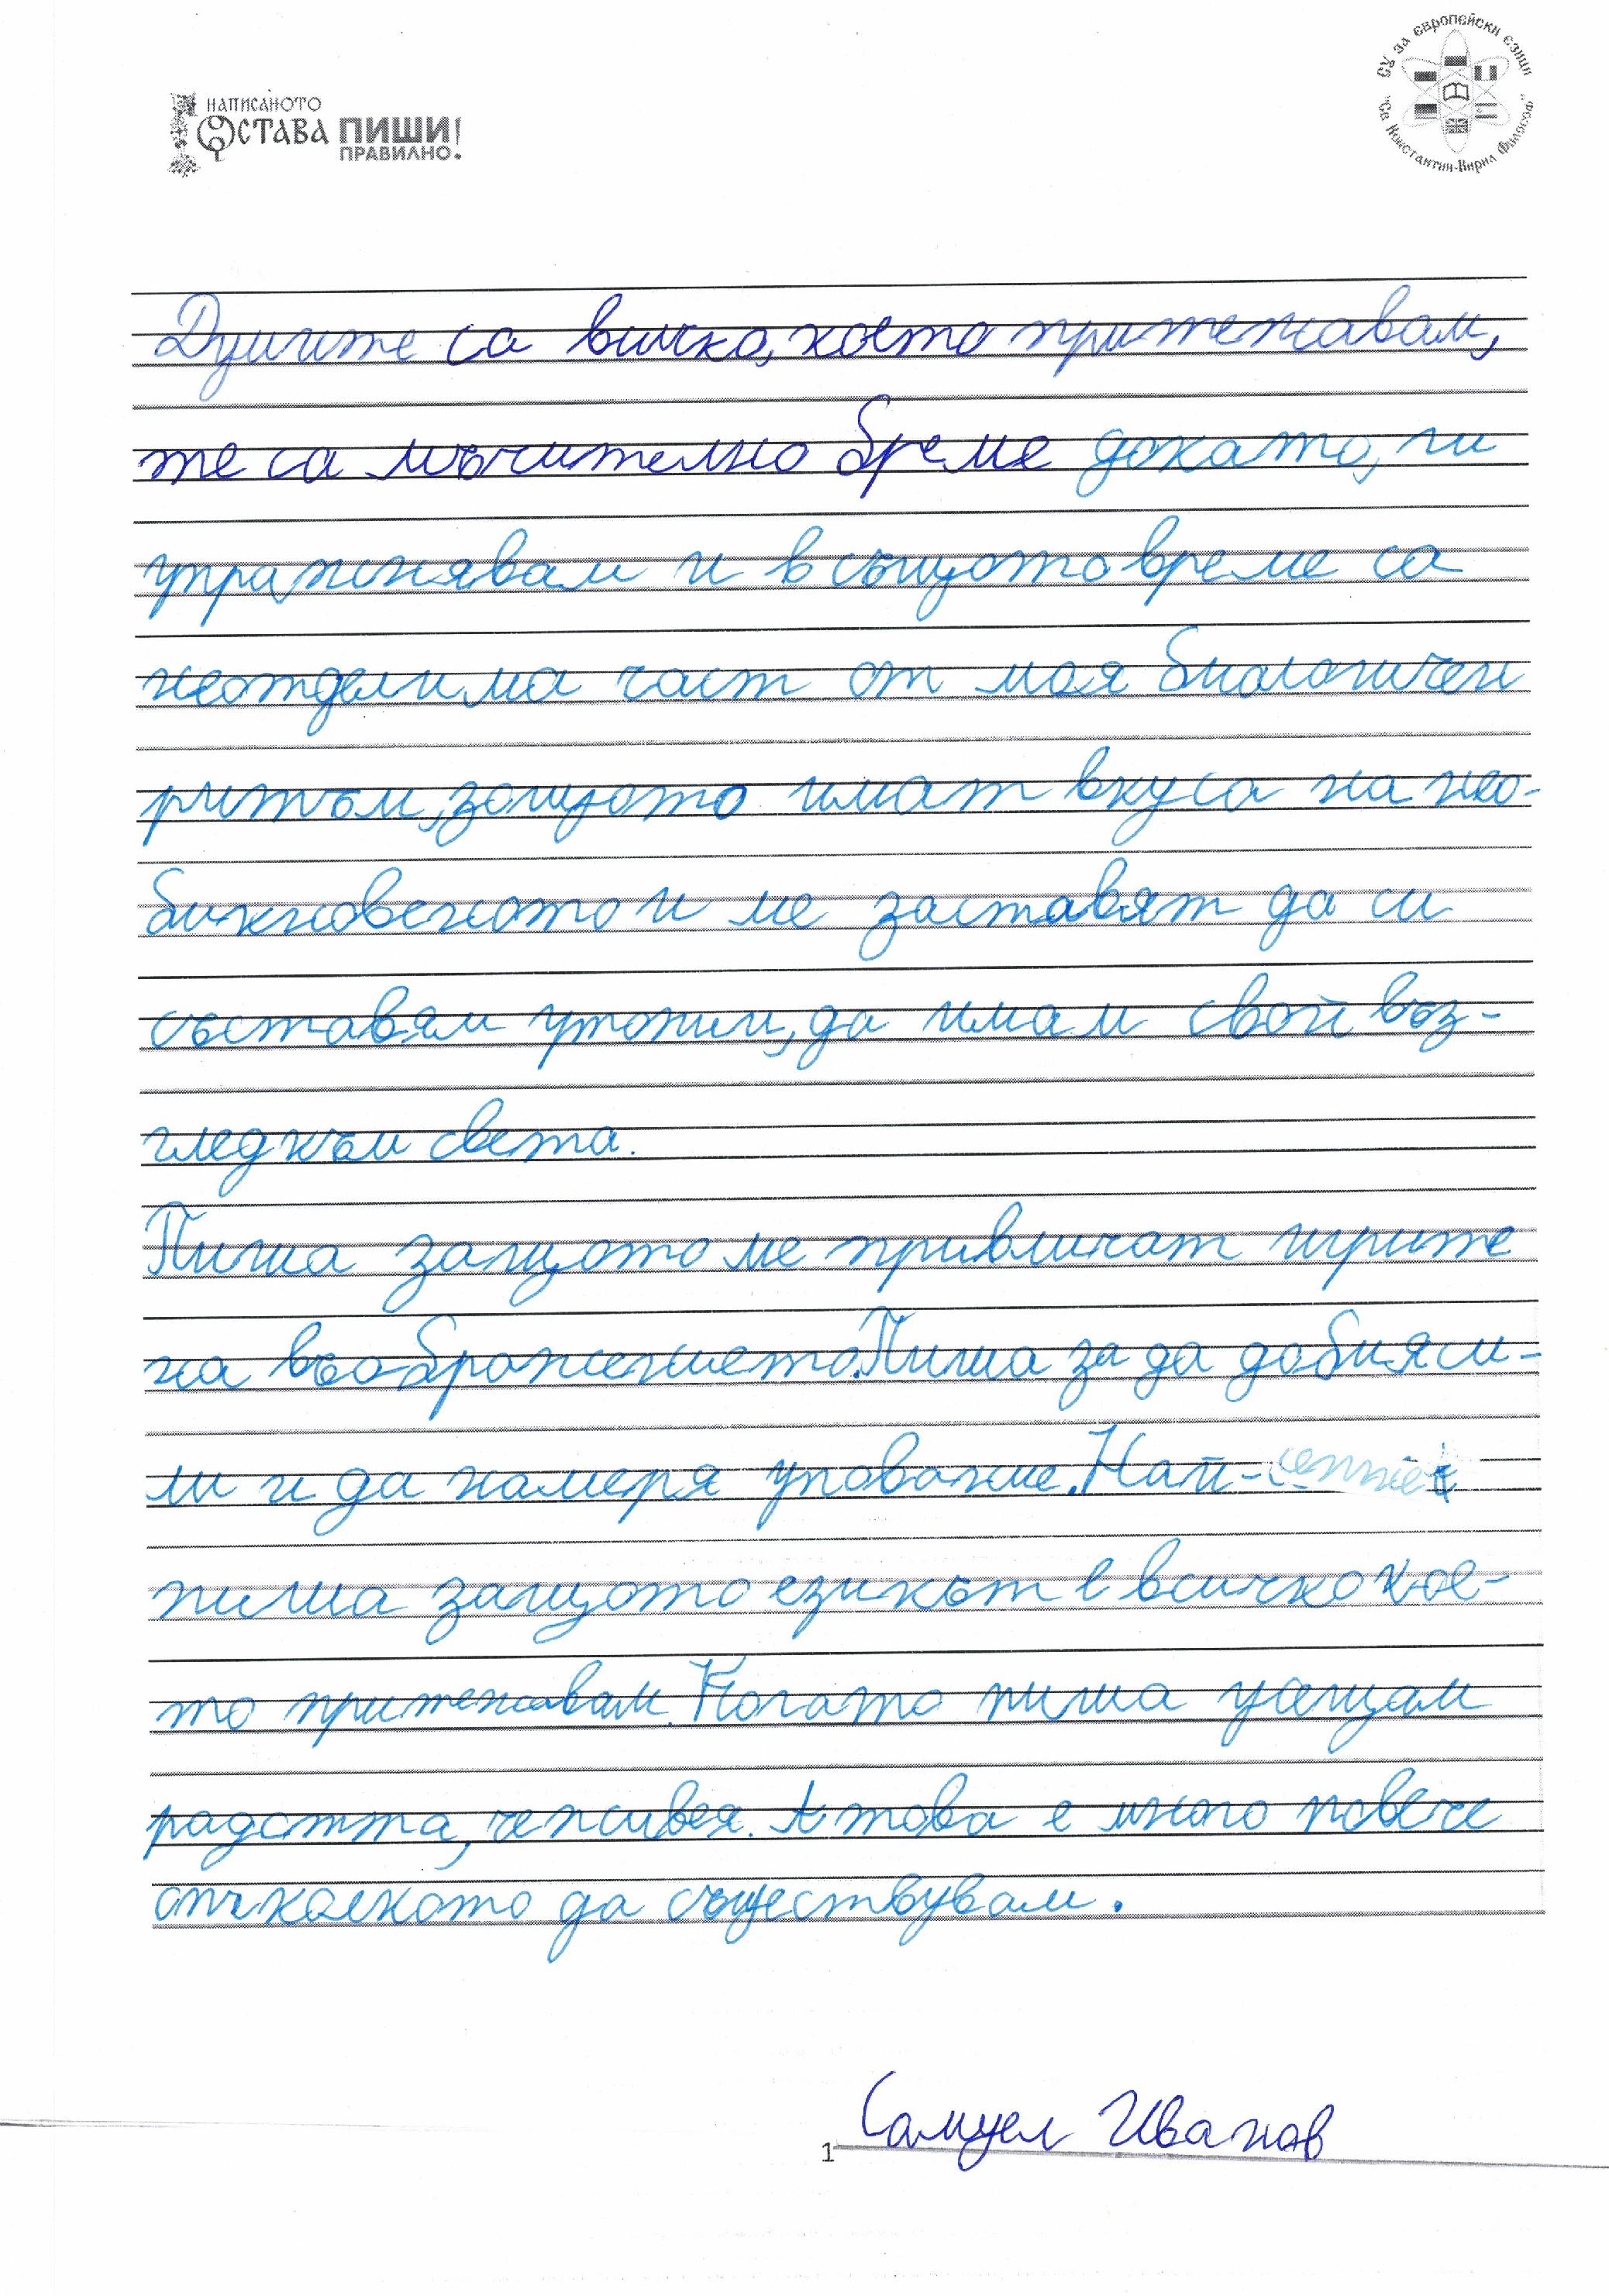 НАПИСАНОТО
ОСТАВА ПИШИ
ПРАВИЛНО!
СУ за европейски езици
"Св. Константин-Кирил Философ"
Думите са всичко, което притежавам,
те са мъчително бреме докато, ги
упражнявам и в същото време са
неотделима част от моя биологичен
ритъм, защото имат вкуса на нео-
бикновеното и ме заставят да си
съставям утопии, да имам свой въз-
глед към света.
Пиша защото ме привличат игрите
на въображението. Пиша за да добия сми-
ли и да намеря упование. Най-
пиша защото езикът е всичко кое-
то притежавам. Когато пиша усещам
радостта, че живея. А това е много повече
отколкото да съществувам.
Самуел Иванов
1